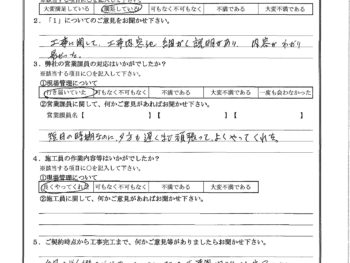 大変満足している 満足している 可もなく不可もなく 不満である 大変不満である
2．「1」についてのご意見をお聞かせ下さい。
工事に関して、工事内容他 細かく説明があり 内容がわかり
易かった。
3．弊社の営業課員の対応はいかがでしたか？
※該当する項目に○を記入して下さい。
①現場管理について
行き届いていた 可もなく不可もなく 不満である 大変不満である 一度も会わなかった
②営業課員に関して、何かご意見があればお聞かせ下さい。
営業課員名【 】【 】【 】
夕方も遅く迄 頑張って、よくやってくれた。
4．施工員の作業内容等はいかがでしたか？
※該当する項目に○を記入して下さい。
①現場管理について
良くやってくれた 可もなく不可もなく 不満である 大変不満である
②施工員に関して、何かご意見があればお聞かせ下さい。
5．ご契約時点から工事完工まで、何かご意見等がありましたらお聞かせ下さい。